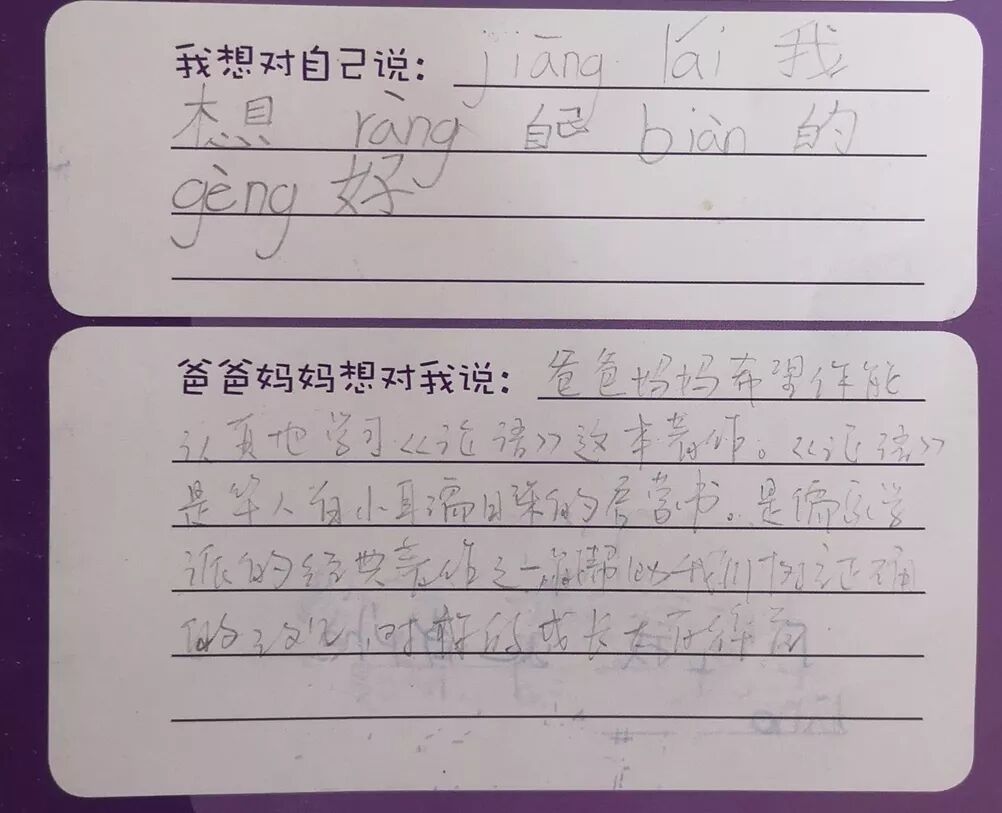 我想对自己说：jiāng lái 我
想 ràng 自己 biàn 的
gèng 好
爸爸妈妈想对我说：爸爸妈妈希望你能
认真地学习《论语》这本著作。《论语》
是华人自小耳濡目染的启蒙书。是儒家学
派的经典著作之一，能帮助我们树立正确
的 ，对你的成长大有裨益